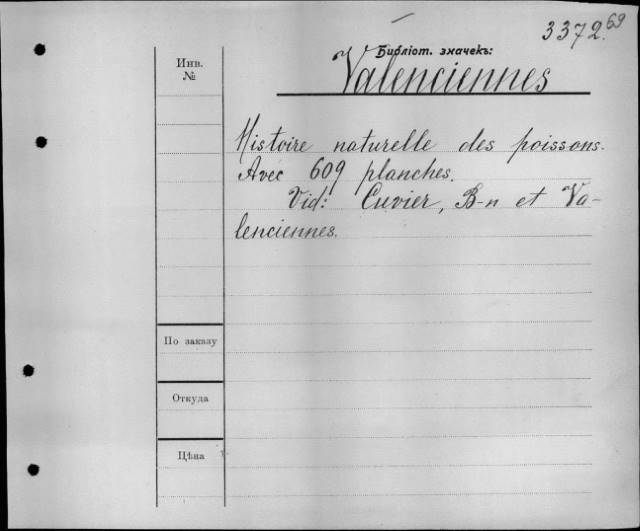 3372.69
Библіот. значекъ:
Valenciennes
Инв.
№
Histoire naturelle des poissons.
Avec 609 planches.
Vid: Cuvier, B-n et Va-
lenciennes.
По заказу
Откуда
Цѣна